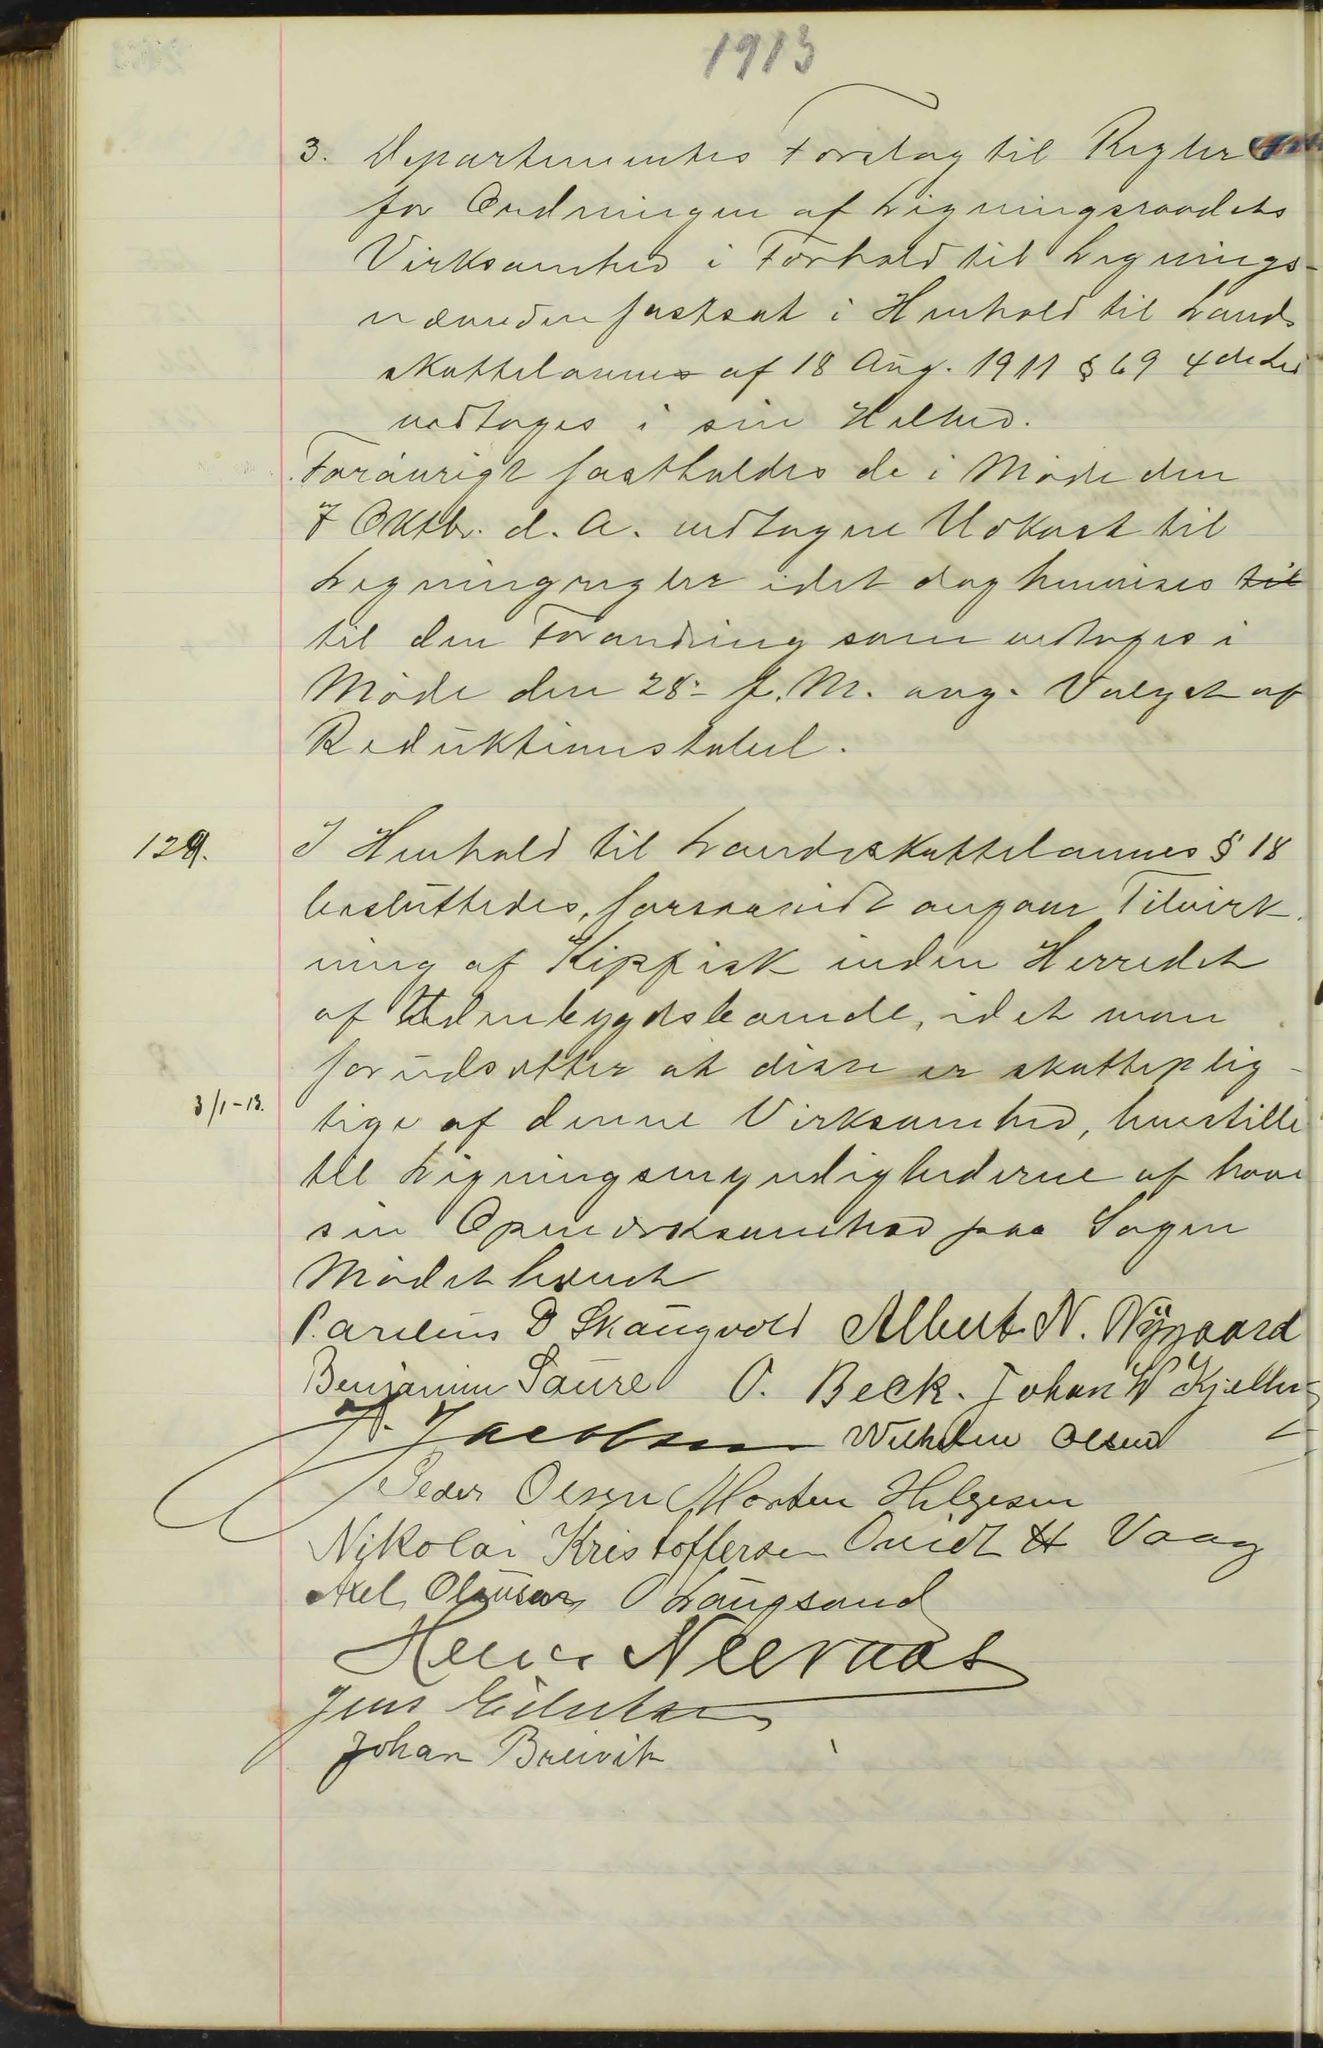 1913
3. Departementes Forslag til Regler
for Ordningen af Ligningsraadets
Virksomhed i Forhold til Lignings-
nævnden fastsat i Henhold til Lands
skattelovens af 18 Aug. 1911 § 69 4de Led
vedtages i sin Helhed.
Foraurigt fastholdes de i Møde den
7 Oktbr. d. A. vedtagne Udkast til
Ligningsregler idet dog henvises til
til den Forandring som vedtoges i
Møde den 28- f. M. ang. Valget af
Reduktionstabel.
129. I Henhold til Landsskattelovens § 18
besluttedes, forsaavidt angaar Tilvirk
ning af Klipfisk inden Herredet
af Udenbygdsboende, idet man
forudsætter at disse er skattepлig-
3/1-13. tige af denne Virksomhed, henstille
til Ligningsmyndighederne at have
sin Opmærksomhed paa Sagen
Mødet hævet
P. Skaugvold Albert N. Nygaard
Benjamin Saure O. Beck. Johan W Kjelle
Jacobsen Wilhelm Olsen
Peder Olsen Morten Helgesen
Nikolai Kristoffersen Ovidt H Vaag
Axel Clausen O Langsand
Neeraas
Jens
Johan Breivik